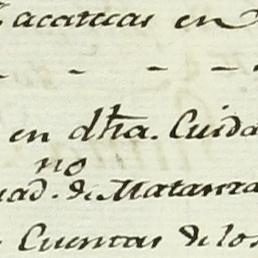 Zacatecas en
en dha. Cuida
no
uad. de Matanza
Cuentas de los